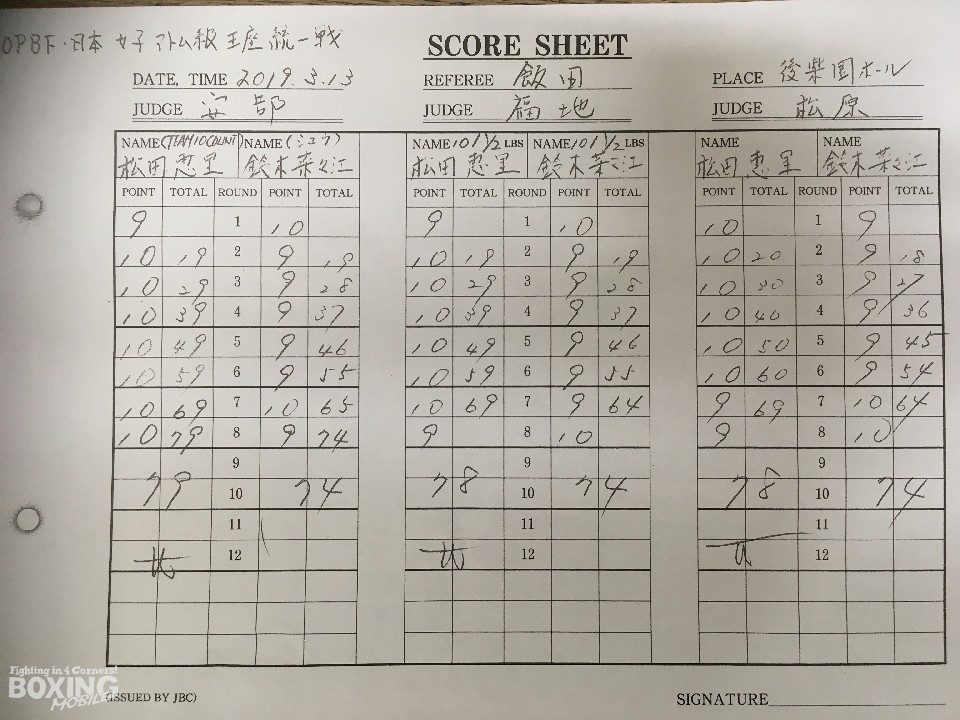 OPBF・日本 女子 アトム級 王座 統一戦
SCORE SHEET
DATE, TIME 2019. 3. 13 REFEREE 飯田 PLACE 後楽園ホール
JUDGE 安部 JUDGE 福地 JUDGE 松原
NAME (TEAM10COUNT) NAME (シュウ) NAME 101 1/2 LBS NAME 101 1/2 LBS NAME NAME
松田 恵里 鈴木菜々江 松田 恵里 鈴木菜々江 松田 恵里 鈴木菜々江
POINT TOTAL ROUND POINT TOTAL POINT TOTAL ROUND POINT TOTAL POINT TOTAL ROUND POINT TOTAL
9 1 10 9 1 10 10 1 9
10 19 2 9 19 10 19 2 9 19 10 20 2 9 18
10 29 3 9 28 10 29 3 9 28 10 30 3 9 27
10 39 4 9 37 10 39 4 9 37 10 40 4 9 36
10 49 5 9 46 10 49 5 9 46 10 50 5 9 45
10 59 6 9 55 10 59 6 9 55 10 60 6 9 54
10 69 7 10 65 10 69 7 9 64 9 69 7 10 64
10 79 8 9 74 9 8 10 9 8 10
9 9 9
79 10 74 78 10 74 78 10 74
11 11 11
12 12 12
Fighting in 4 Corners!
BOXING
MOBILE
(ISSUED BY JBC) SIGNATURE